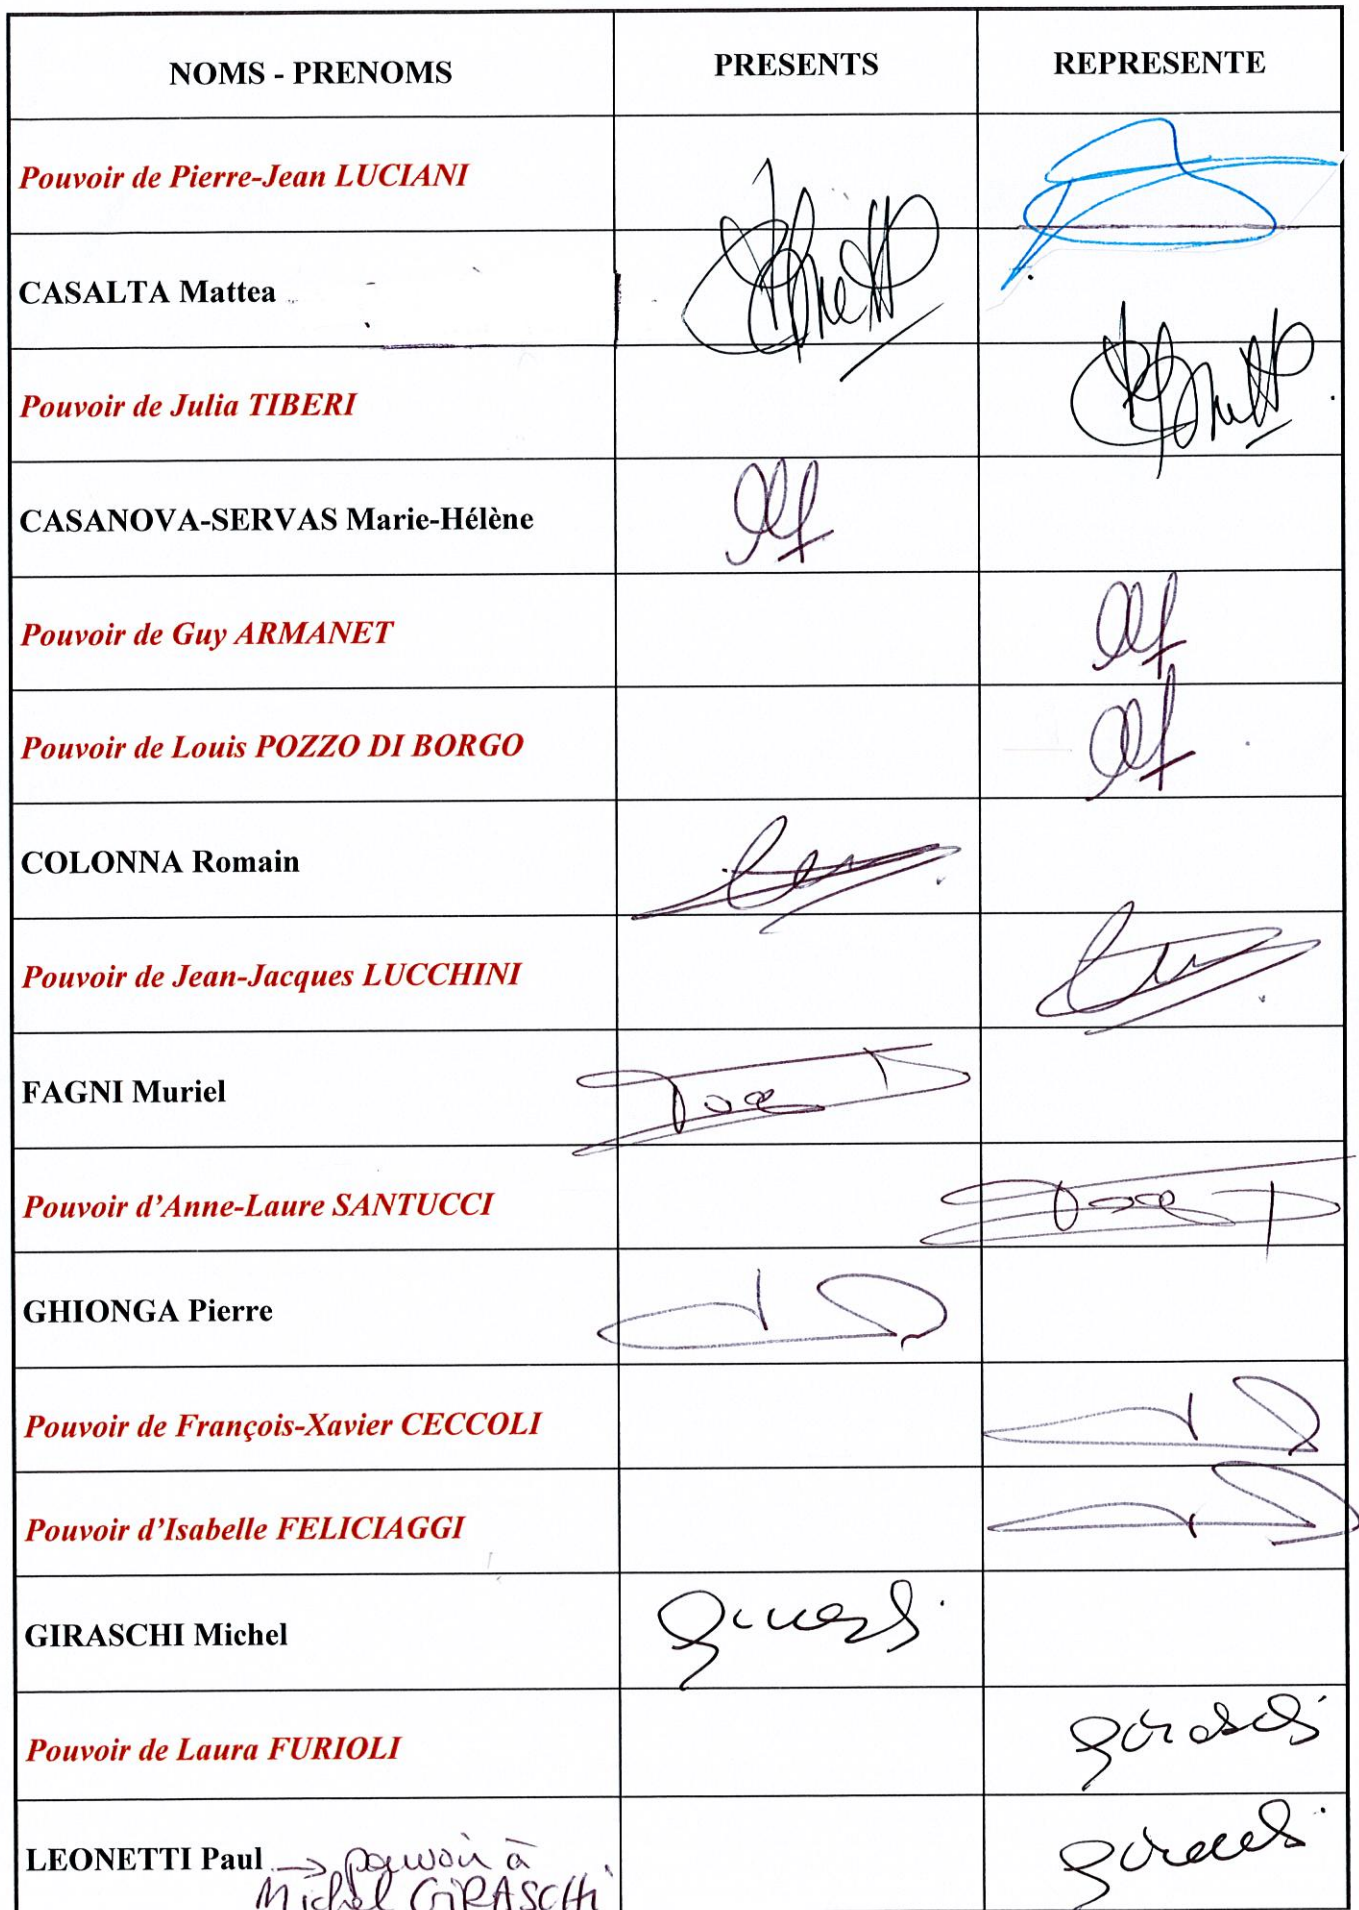 NOMS - PRENOMS PRESENTS REPRESENTE
Pouvoir de Pierre-Jean LUCIANI
CASALTA Mattea
Pouvoir de Julia TIBERI
CASANOVA-SERVAS Marie-Hélène
Pouvoir de Guy ARMANET
Pouvoir de Louis POZZO DI BORGO
COLONNA Romain
Pouvoir de Jean-Jacques LUCCHINI
FAGNI Muriel
Pouvoir d'Anne-Laure SANTUCCI
GHIONGA Pierre
Pouvoir de François-Xavier CECCOLI
Pouvoir d'Isabelle FELICIAGGI
GIRASCHI Michel
Pouvoir de Laura FURIOLI
LEONETTI Paul → pouvoir à
Michel GiRASCHi